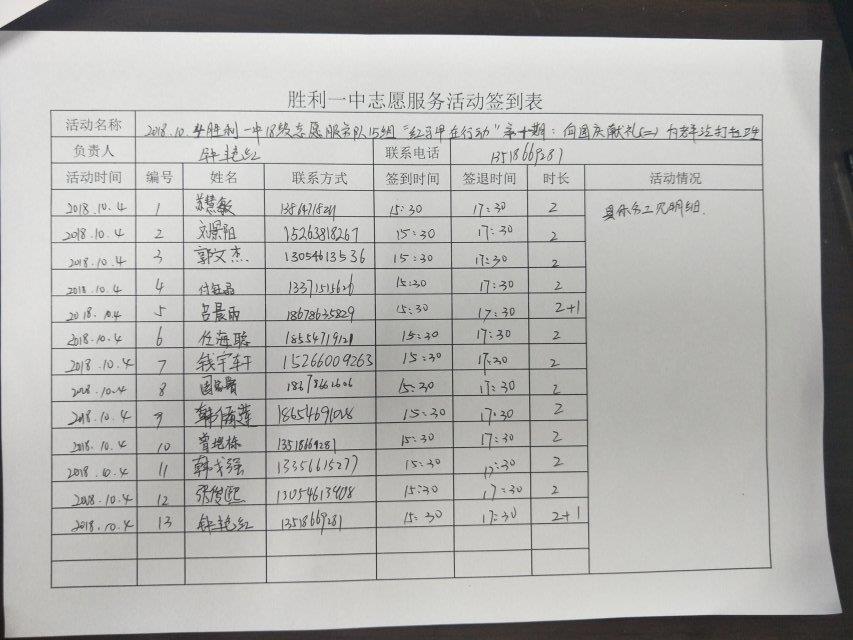 胜利一中志愿服务活动签到表
活动名称 2018.10.4胜利一中18级志愿服务队15组"红马甲在行动"第十期：向国庆献礼(二)
负责人 钟艳红 联系电话 13518669281
活动时间 编号 姓名 联系方式 签到时间 签退时间 时长 活动情况
2018.10.4 1 苏慧敏 15:30 17:30 2 具体分工见明细.
2018.10.4 2 刘景阳 15263818267 15:30 17:30 2
2018.10.4 3 郭文杰 13054613536 15:30 17:30 2
2018.10.4 4 付钰晶 13371515626 15:30 17:30 2
2018.10.4 5 吕晨雨 18678635829 15:30 17:30 2+1
2018.10.4 6 任海聪 18554719121 15:30 17:30 2
2018.10.4 7 钱宇轩 15266009263 15:30 17:30 2
2018.10.4 8 18678661606 15:30 17:30 2
2018.10.4 9 15:30 17:30 2
2018.10.4 10 13518669281 15:30 17:30 2
2018.10.4 11 韩戈强 13356615277 15:30 17:30 2
2018.10.4 12 张俊熙 13054613908 15:30 17:30 2
2018.10.4 13 钟艳红 13518669281 15:30 17:30 2+1